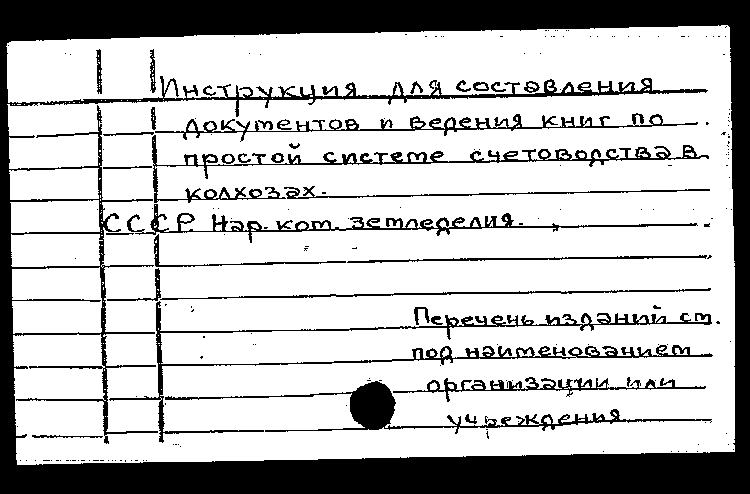 Инструкция для составления
документов и ведения книг по
простой системе счетоводства в
колхозах.
СССР Нар. ком. земледелия.
Перечень изданий см.
под наименованием
организации или
учреждения